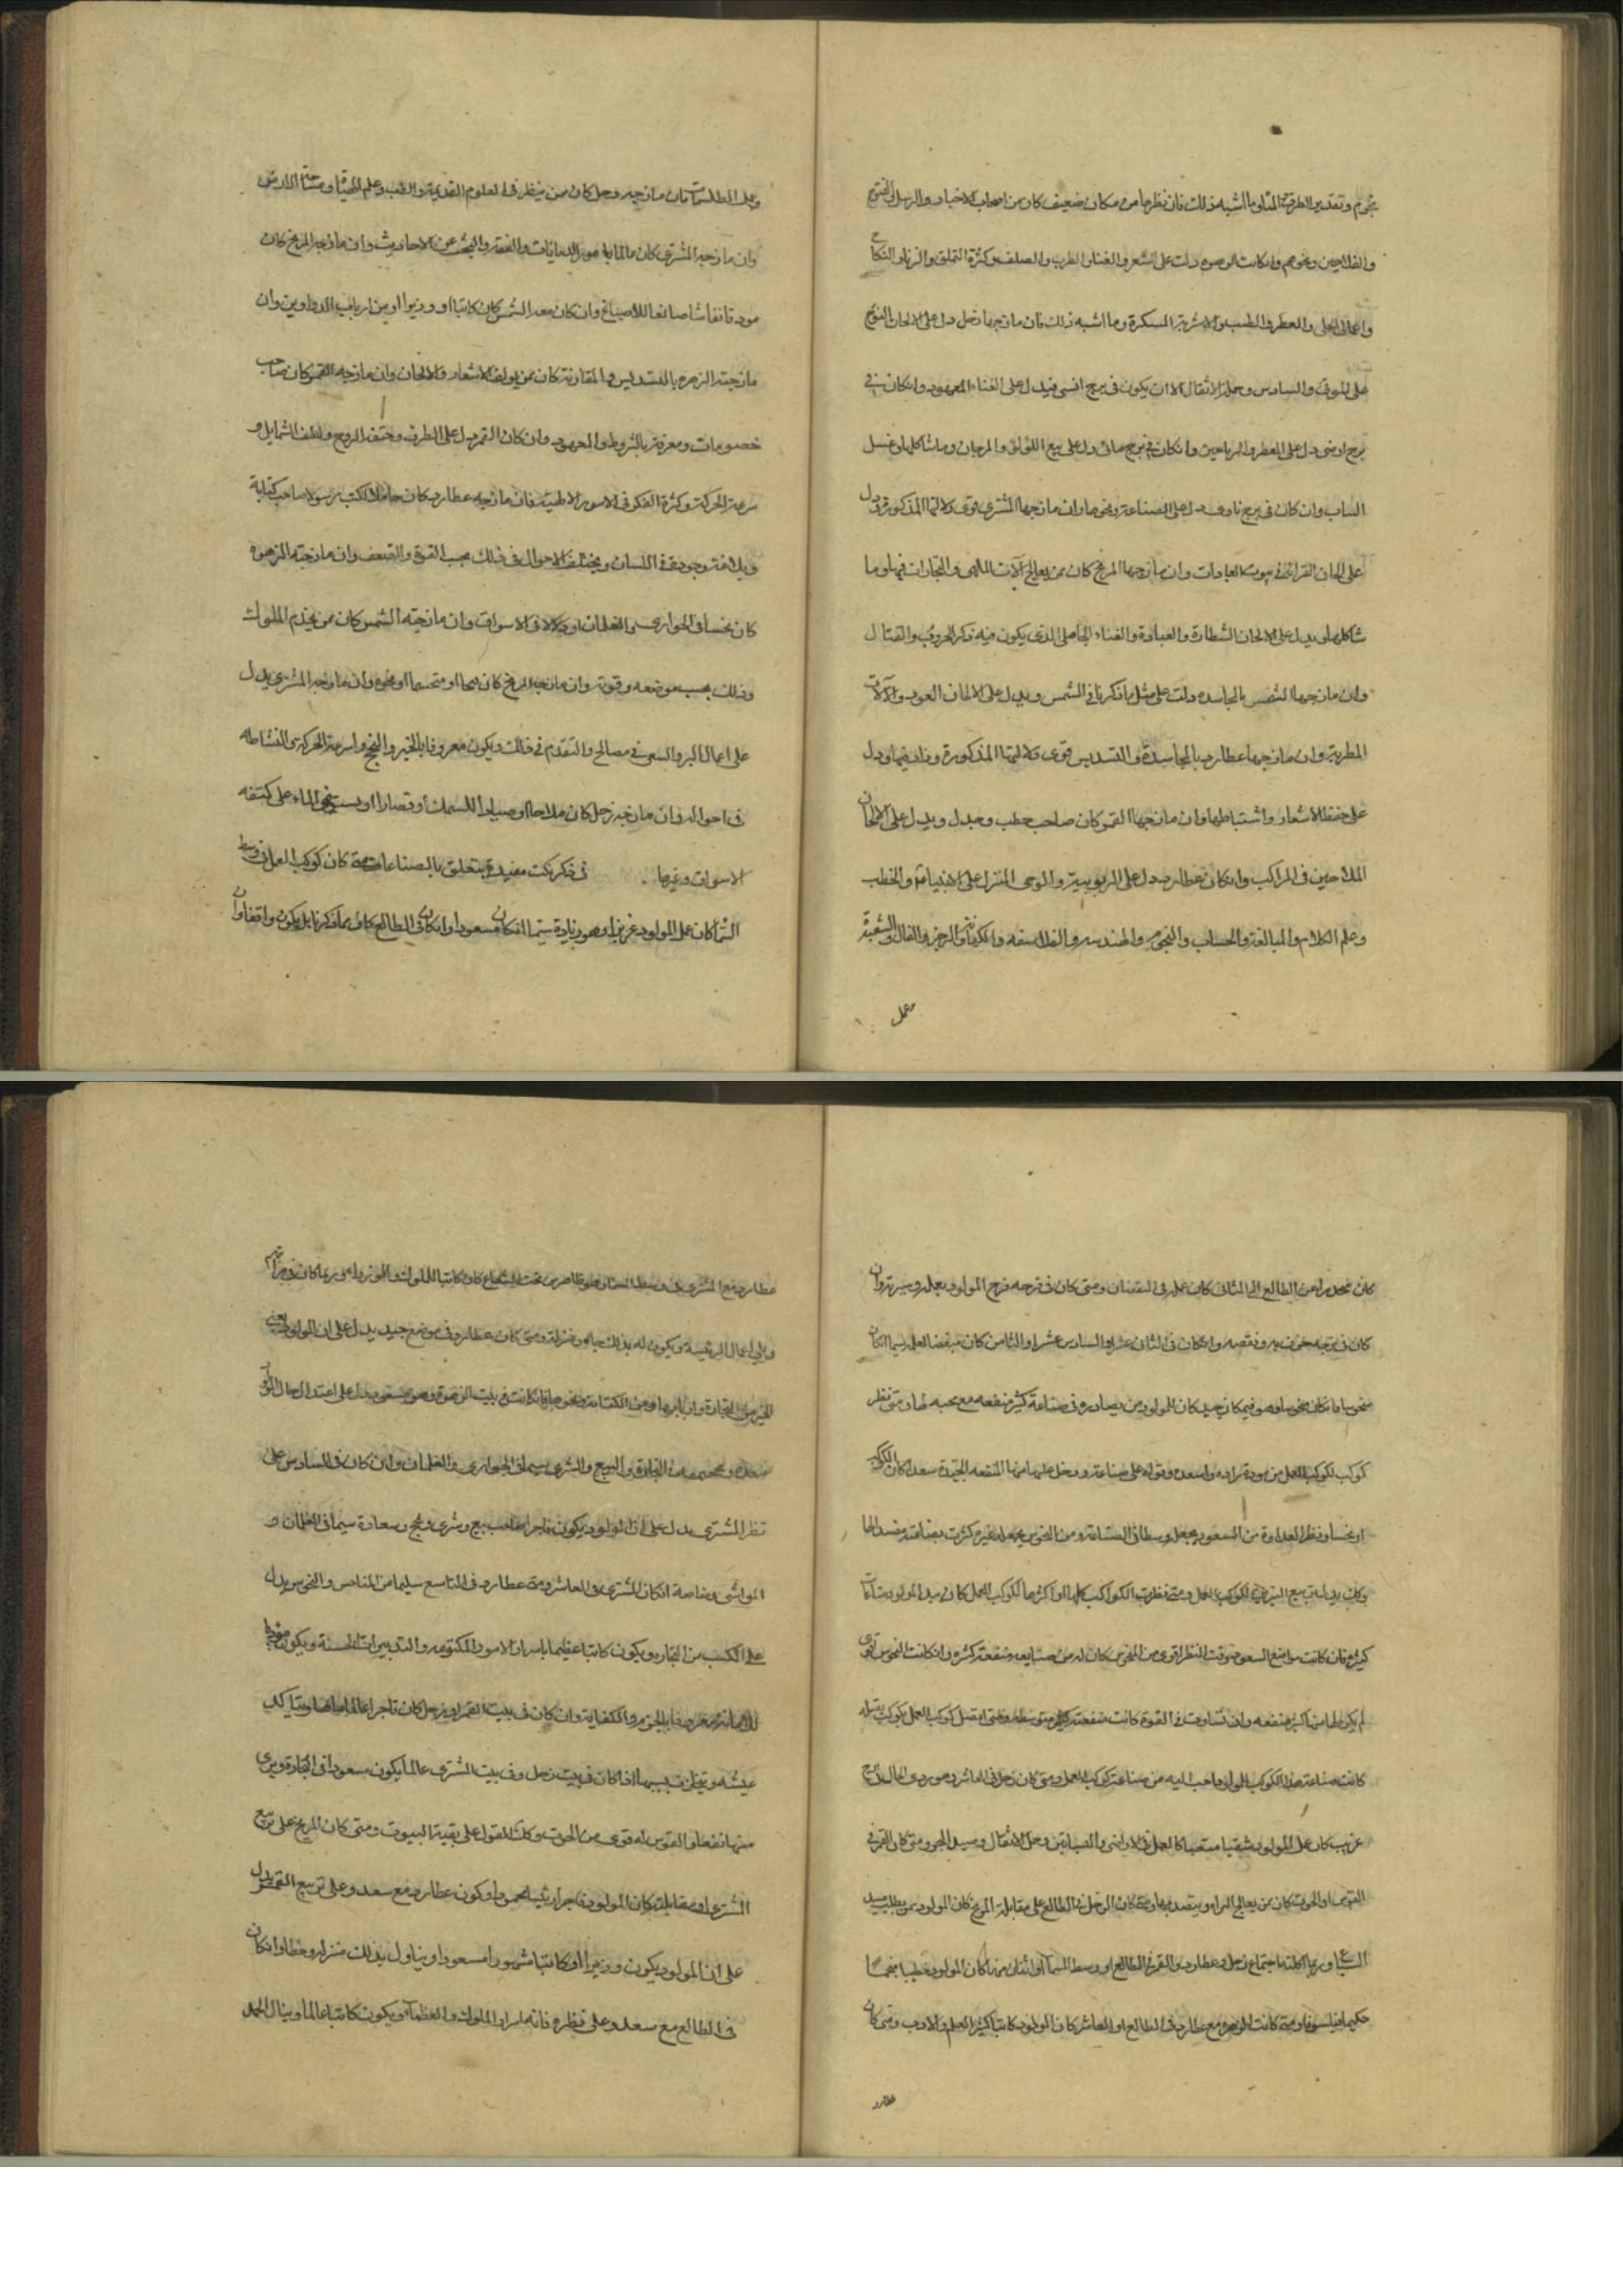 نجوم وتقدير الطرقة المياه وما اشبه ذلك فان نظرها من مكان ضعيف كان من اصحاب الاخبار والرسل والفتوح
والفلاحين ونحوهم وان كانت الزهره دلت على الشعر والغناء والطرب والصلف وكثرة التملق والزنا والنكاح
واعمال الحلى والعطر والطيب والاشربة المسكرة وما اشبه ذلك فان مازجها زحل دل على الالحان النوح
على الموتى والسادس وحمل الاثقال الا ان يكون في برج انسى فيدل على الغناء المعهود وان كان في
برج ارضى دل على العطر والرياحين وان كان في برج مائى دل على بيع اللؤلؤ والمرجان وما شاكلها وغسل
الثياب وان كان في برج نارى دل على الصناعة ونحوها وان مازجها المشترى قوى دلالتها المذكورة ودل
على الحان القرائة في بيوت العبادات وان مازجها المريخ كان ممن يعالج آلات الملاهى والتجارات فيها وما
شاكلها ويدل على الالحان الشطارة والعيارة والغناء الجاهلى الذى يكون فيه ذكر الحروب والقتال
وان مازجها الشمس بالمجاسده دلت على مثل ما ذكرنا في الشمس ويدل على الحان العود والآلات
المطربة وان مازجها عطارد بالمجاسدة والتسديس قوى دلالتها المذكورة وزاد فيها ودل
على حفظ الاشعار واستنباطها وان مازجها القمر كان صاحب خطب وجدل ويدل على الالحان
الملاحين في المراكب وان كان عطارد دل على الربوبية والوحى المنزل على الانبياء عم والخطب
وعلم الكلام والمبالغة والحساب والنجوم والهندسه والفلاسفه والكهانة والزجر والفال والشعبذة
وعمل
وعمل الطلسمات فان مازجه زحل كان ممن ينظر في العلوم القديمة والطب وعلم الهيئة ومساحة الارض
وان مازجه المشترى كان عالما بامور الديانات والفقه والبحث عن الاحاديث وان مازجه المريخ كان
مزوقا نقاشا صانعا للاصباغ وان كان معه الشمس كان كاتبا او وزيرا او من ارباب الدواوين وان
مازجته الزهره بالتسديس والمقارنة كان ممن يولف الاشعار والالحان وان مازجه القمر كان صاحب
خصومات ومعرفة بالشروط والعهود وان كان القمر دل على الظرف وخفة الروح ولطف الشمايل و
سرعة الحركة وكثرة الفكر في الامور الارضية فان مازجه عطارد كان حاملا لكتب رسولا صاحب كتابة
وبلاغة وجودة في اللسان ويختلف الاحوال في ذلك بحسب القوة والضعف وان مازجته الزهره
كان نخاسا في الجوارى والغلمان او دلالا في الاسواق وان مازجته الشمس كان ممن يخدم الملوك
وذلك بحسب موضعه وقوته وان مازجه المريخ كان او متجسسا او نحوه وان مازجه المشترى يدل
على اعمال البر والسعى في مصالح والتقدم في ذلك ويكون معروفا بالخير والنجح واسرعة الحركة والنشاطه
في احواله وان مازجه زحل كان ملاحا او صيادا للسمك او قصارا او يستقى الماء على كتفه
الاسواق وغيرها . في ذكر نكت مفيدة يتعلق بالصناعات متى كان كوكب العمل في وسط
السماء كان عمل المولود عزيزا وهو زيادة سيما ان كان مسعودا وان كان في الطالع كان ما ذكرنا بل يكون واقفا وان
كان منحدرا من الطالع الى الثانى كان عمله في النقصان ومتى كان في فرحه فرح المولود بعمله وسر به وان
كان في ترحه حزن به ونغصه وان كان في الثانى عشر او السادس عشر او الثامن كان مبغضا لعمله سيما ان كان
منحوسا فان كان منحوسا وهو في مكان جيد كان المولود من يصادره في صناعة كثير منفعه مع محبه لها ومتى نظر
كوكب لكوكب العمل من مودة زاده واسعده وقواه على صناعته ودخل عليها منها المنفعه الجيدة سعدا كان الكوكب
او نحسا ونظر العداوة من السعود يجعله وسطا في الصناعة ومن النحوس يجعله غير كثرت بصناعته ومفسدا لها
وكان بدلت تربيع النيرين لكوكب العمل ومتى نظرت الكواكب كلها او اكثرها لكوكب العمل كان بيد المولود صناعات
كثيرة فان كانت مواضع السعود وقت النظر اقوى من النحوس كان له من صنايعه منفعة كثيره وان كانت النحوس اقوى
لم يكن لها من كثير منفعه وان تساوت في القوة كانت منفعته كثير متوسطه ومتى اتصل كوكب العمل بكوكب يقبله
كانت صناعة هذا الكوكب للمولود احب اليه من صناعة كوكب العمل ومتى كان زحل في العاشر وهو ردى الحال
غريب كان عمل المولود شقيا متعبا كالعمل في الاراضى والصباغين وحمل الاثقال وسبيل البحر ومتى كان القمر في
القوس او الحوت كان ممن يعالج البزاه ويتصد بها ومتى كان الزحل في الطالع على مقابلة المريخ كان المولود ممن يطلب صيد
السباع وربما اكلته باجتماع زحل وعطارد والقمر في الطالع او وسط السماء او اثنان منها كان المولود خطيبا منجما
حكيما فيلسوفا ومتى كانت الزهره مع عطارد في الطالع او العاشر كان المولود كاتبا كثير العلم والادب ومتى كان
عطارد
عطارد مع المشترى في وسط السماء وهو ظاهر من تحت الشعاع كان كاتبا للملوك والوزراء وربما كان
والى اعمال الرئيسه ويكون له بذلك جاه ومنزلة ومتى كان عطارد في موضع جيد يدل على ان المولود يصيب
الخير من التجارة وان كان في بيت الزهرة وهو مسعود يدل على اعتدال حال المولود
التجارة والبيع والشرى سيما في الجوارى والغلمان وان كان في السادس على
نظر المشترى يدل على ان المولود يكون تاجرا صاحب بيع وشرى وربح وسعادة سيما في الغلمان و
المواشى وخاصة ان كان المشترى في العاشر ومتى عطارد في التاسع سليما من المناحس والنحوس يدل
على الكسب من التجاره ويكون كاتبا عظيما باسرار الامور المكتومه والتدبيرات الحسنة ويكون مؤديا
للامانة معروفا بالحزم والكفاية وان كان في بيت القمر او زحل كان تاجرا عالما
عيشه ويتخلف بسببها اذا كان في بيت زحل وفي بيت المشترى عالما يكون مسعودا في التجارة ويرى
منها نفعا والقوس له قوى من الحوت وكذلك القول على بقية البيوت ومتى كان المريخ على تربيع
المشترى او مقابلته كان المولود تاجرا رئيسا محمودا وكون عطارد مع سعد وعلى تربيع القمر يدل
على ان المولود يكون وزيرا او كاتبا مشهورا مسعودا ويناول بذلك منزله وحظا وان كان
في الطالع مع سعد وعلى نظره فانه اسرار الملوك والعظماء ويكون كاتبا عالما وينال الحمد